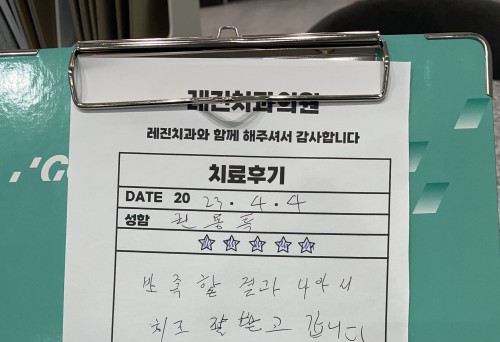 레진치과의원
레진치과와 함께 해주셔서 감사합니다
치료후기
DATE 20 23. 4. 4
성함 권
만족할 결과 나와서
치료 잘 받고 갑니다